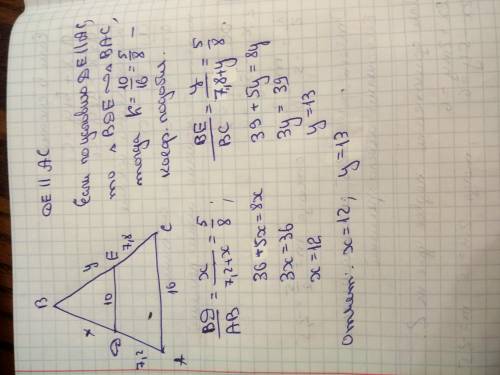 DE || AC
Если по условию DE || AC,
то △ BDE ~ △ BAC,
тогда k = 10/16 = 5/8 –
коэф. подобия.
B
x
y
D
10
E
7,2
7,8
A
16
C
BD/AB = x/(7,2+x) = 5/8;
36 + 5x = 8x
3x = 36
x = 12
BE/BC = y/(7,8+y) = 5/8.
39 + 5y = 8y
3y = 39
y = 13
Ответ: x = 12; y = 13